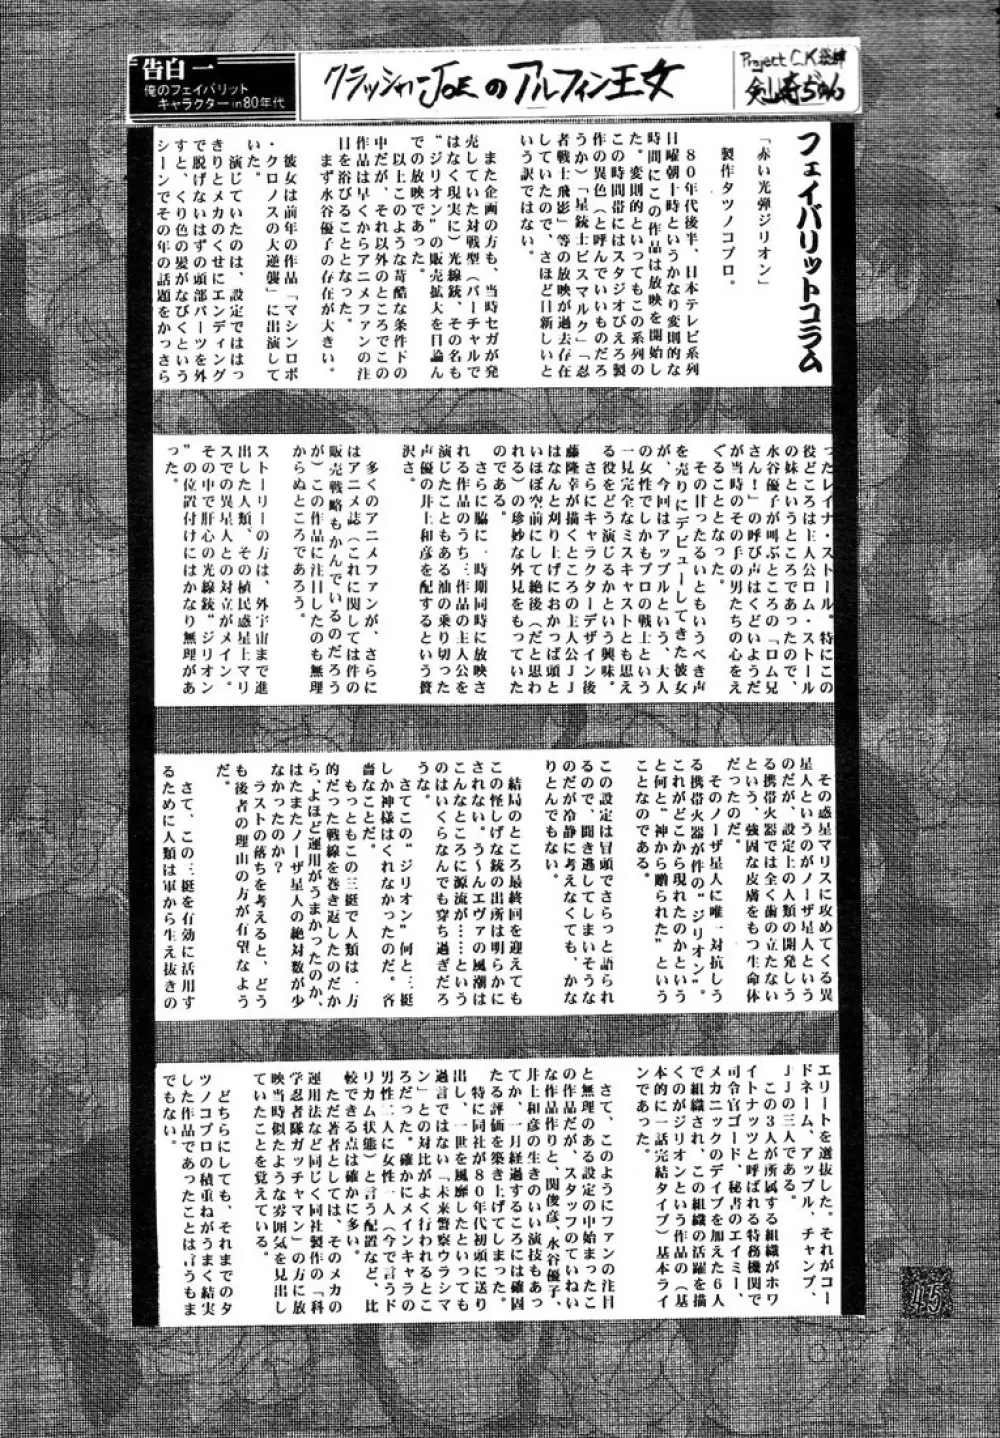 告白一
俺のフェイバリット
キャラクターin80年代
クラッシャーJOEのアルフィン王女
Project C.K.
フェイバリットコラム
「赤い光弾ジリオン」
製作タツノコプロ。
80年代後半、日本テレビ系列
日曜朝十時というかなり変則的な
時間にこの作品は放映を開始し
た。変則的といってもこの系列の
この時間帯にはスタジオぴえろ製
作の異色(と呼んでいいものだろ
うか)「星銃士ビスマルク」「忍
者戦士飛影」等の放映が過去存在
していたので、さほど目新しいと
いう訳ではない。
また企画の方も、当時セガが発
売していた対戦型(バーチャルで
はなく現実に)光線銃、その名も
“ジリオン”の販売拡大を目論ん
での放映であった。
以上このような苛酷な条件下の
中だが、それ以外のところでこの
作品は早くからアニメファンの注
目を浴びることとなった。
まず水谷優子の存在が大きい。
彼女は前年の作品「マシンロボ
・クロノスの大逆襲」に出演して
いた。
演じていたのは、設定でははっ
きりとメカのくせにエンディング
で脱げないはずの頭部パーツを外
すと、くり色の髪がなびくという
シーンでその年の話題をかっさら
ったレイナ・ストール。特にこの
役どころは主人公ロム・ストール
の妹というところであったので、
水谷優子が叫ぶところの「ロム兄
さん!」の呼び声はくどいようだ
が当時のその手の男たちの心をえ
ぐることとなった。
その甘ったるいともいうべき声
を売りにデビューしてきた彼女
が、今回はアップルという、大人
の女性でしかもプロの戦士という
一見完全なミスキャストとも思え
る役をどう演じるかという興味。
さらにキャラクターデザイン後
藤隆幸が描くところの主人公JJ
はなんと刈り上げにおかっぱ頭と
いいほぼ空前にして絶後(だと思わ
れる)の珍妙な外見をもっていた
のである。
さらに脇に一時期同時に放映さ
れる作品のうち三作品の主人公を
演じたこともある油の乗り切った
声優の井上和彦を配するという贅
沢さ。
多くのアニメファンが、さらに
はアニメ誌(これに関しては件の
販売戦略もかんでいるのだろう
が)この作品に注目したのも無理
からぬところであろう。
ストーリーの方は、外宇宙まで進
出した人類、その植民惑星上マリ
スでの異星人との対立がメイン。
その中で肝心の光線銃“ジリオン
”の位置付けにはかなり無理があ
った。
その惑星マリスに攻めてくる異
星人というのがノーザ星人という
のだが、設定上の人類の開発しう
る携帯火器では全く歯の立たない
という、強固な皮膚をもつ生命体
だったのだ。
そのノーザ星人に唯一対抗しう
る携帯火器が件の“ジリオン”。
これがどこから現れたのかという
と何と“神から贈られた”という
ことなのである。
この設定は冒頭でさらっと語られ
るので、聞き逃してしまいそうな
のだが冷静に考えなくても、かな
りとんでもない。
結局のところ最終回を迎えても
この怪しげな銃の出所は明らかに
されない。う〜んエヴァの風潮は
こんなところに源流が……という
のはいくらなんでも穿ち過ぎだろ
うな。
さてこの“ジリオン”何と三挺
しか神様はくれなかったのだ。吝
嗇なことだ。
もっともこの三挺で人類は一方
的だった戦線を巻き返したのだか
ら、よほど運用がうまかったのか、
はたまたノーザ星人の絶対数が少
なかったのか?
ラストの落ちを考えると、どう
も後者の理由の方が有望なよう
だ。
さて、この三挺を有効に活用す
るために人類は軍から生え抜きの
エリートを選抜した。それがコー
ドネーム、アップル、チャンプ、
JJの三人である。
この3人が所属する組織がホワ
イトナッツと呼ばれる特務機関で
司令官ゴード、秘書のエイミー、
メカニックのデイブを加えた6人
で組織され、この組織の活躍を描
くのがジリオンという作品の(基
本的に一話完結タイプ)基本ライ
ンであった。
さて、このようにファンの注目
と無理のある設定の中始まったこ
の作品だが、スタッフのていねい
な作品作りと、関俊彦、水谷優子、
井上和彦の生きのいい演技もあっ
てか、一月経過するころには確固
たる評価を築き上げてしまった。
特に同社が80年代初頭に送り
出し、一世を風靡したといっても
過言ではない「未来警察ウラシマ
ン」との対比がよく行われるとこ
ろだった。確かにメインキャラの
男性二人に女性一人(今で言うド
リカム状態)と言う配置など、比
較できる点は確かに多い。
ただ著者としては、そのメカの
運用法など同じく同社製作の「科
学忍者隊ガッチャマン」の方に放
映当時似たような雰囲気を見出し
ていたことを覚えている。
どちらにしても、それまでのタ
ツノコプロの積重ねがうまく結実
した作品であったことは言うもま
でもない。
45